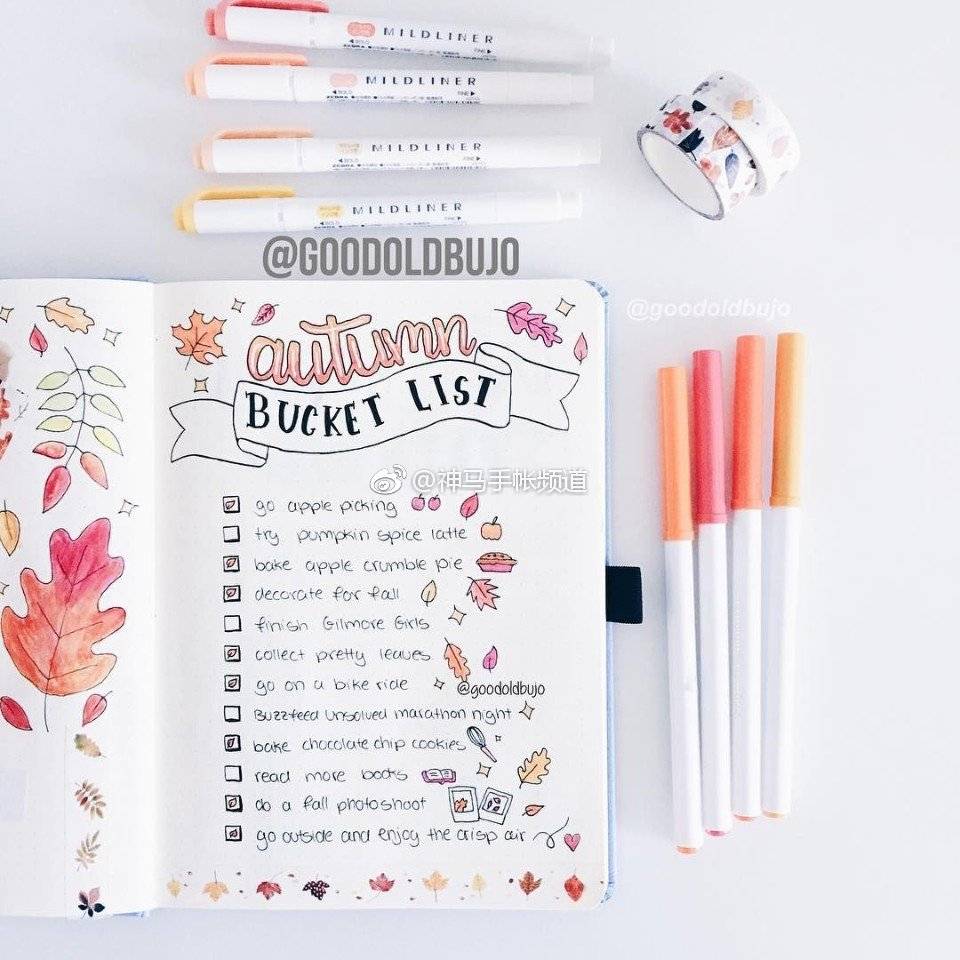 MILDLINER
◄BOLD FINE►
ZEBRA
MILDLINER
◄BOLD FINE►
ZEBRA
MILDLINER
◄BOLD FINE►
MILDLINER
◄BOLD FINE►
@GOODOLDBUJO
@goodoldbujo
autumn
BUCKET LIST
@神马手帐频道
go apple picking
try pumpkin spice latte
bake apple crumble pie
decorate for fall
finish Gilmore Girls
collect pretty leaves
go on a bike ride
@goodoldbujo
Buzzfeed unsolved marathon night
bake chocolate chip cookies
read more books
do a fall photoshoot
go outside and enjoy the crisp air